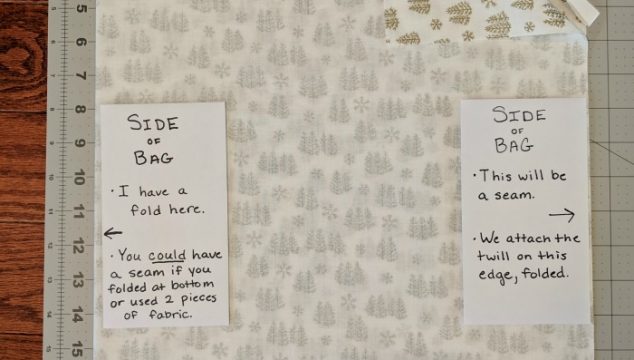 5
6
7
8
9
10
11
12
13
14
15
SIDE
OF
BAG
· I have a
fold here.
←
· You could have
a seam if you
folded at bottom
or used 2 pieces
of fabric.
SIDE
OF
BAG
· This will be
a seam.
→
· We attach the
twill on this
edge, folded.